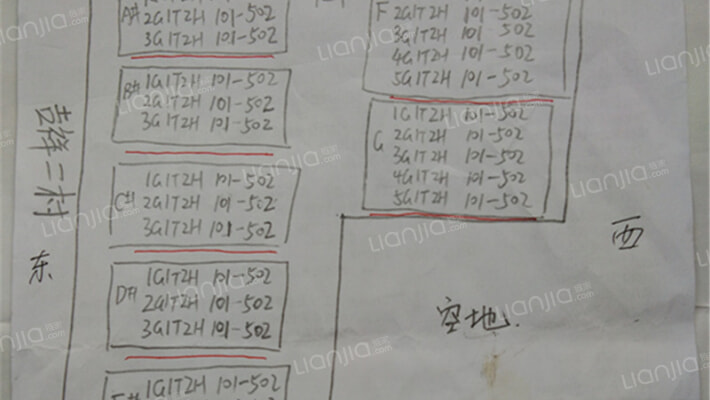 A#
2G1T2H 101-502
3G1T2H 101-502
B#
1G1T2H 101-502
2G1T2H 101-502
3G1T2H 101-502
C#
1G1T2H 101-502
2G1T2H 101-502
3G1T2H 101-502
D#
1G1T2H 101-502
2G1T2H 101-502
3G1T2H 101-502
1G1T2H 101-502
F
2G1T2H 101-502
3G1T2H 101-502
4G1T2H 101-502
5G1T2H 101-502
G
1G1T2H 101-502
2G1T2H 101-502
3G1T2H 101-502
4G1T2H 101-502
5G1T2H 101-502
二村
东
西
空地
Lianjia.链家